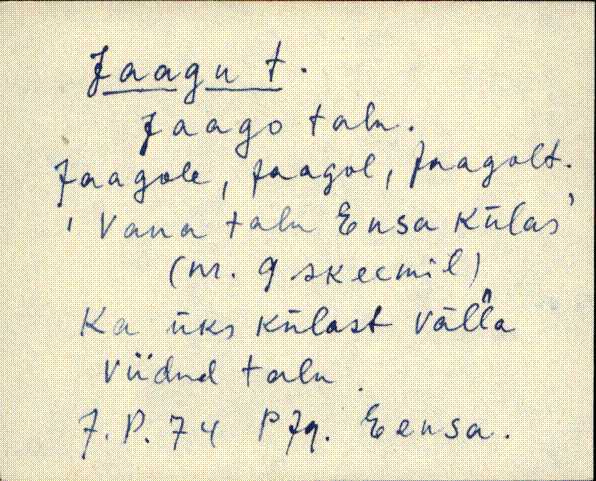 Jaagu t.
Jaago talu.
Jaagole, Jaagol, Jaagolt.
' Vana talu Eensa külas'
(nr. 9 skeemil)
Ka üks külast välla
viidud talu
J. P. 74 PJg. Eensa.